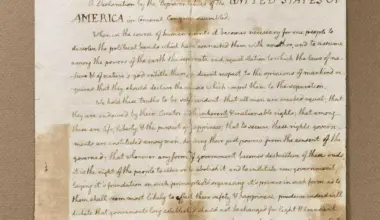 a Declaration by the Representatives of the UNITED STATES OF
AMERICA in General Congress assembled.
When in the course of human events it becomes necessary for one people to
dissolve the political bands which have connected them with another, and to assume
among the powers of the earth the separate and equal station to which the laws of na-
ture & of nature's god entitle them, a decent respect to the opinions of mankind re-
quires that they should declare the causes which impel them to the separation.
We hold these truths to be self-evident: that all men are created equal; that
they are endowed by their Creator with inherent & inalienable rights; that among
these are life, liberty, & the pursuit of happiness; that to secure these rights, govern-
ments are instituted among men, deriving their just powers from the consent of the
governed; that whenever any form of government becomes destructive of these ends
it is the right of the people to alter or to abolish it, and to institute new government,
laying it's foundation on such principles & organising it's powers in such form, as to
them shall seem most likely to effect their safety & happiness. prudence indeed will
dictate that governments long established should not be changed for light & transient